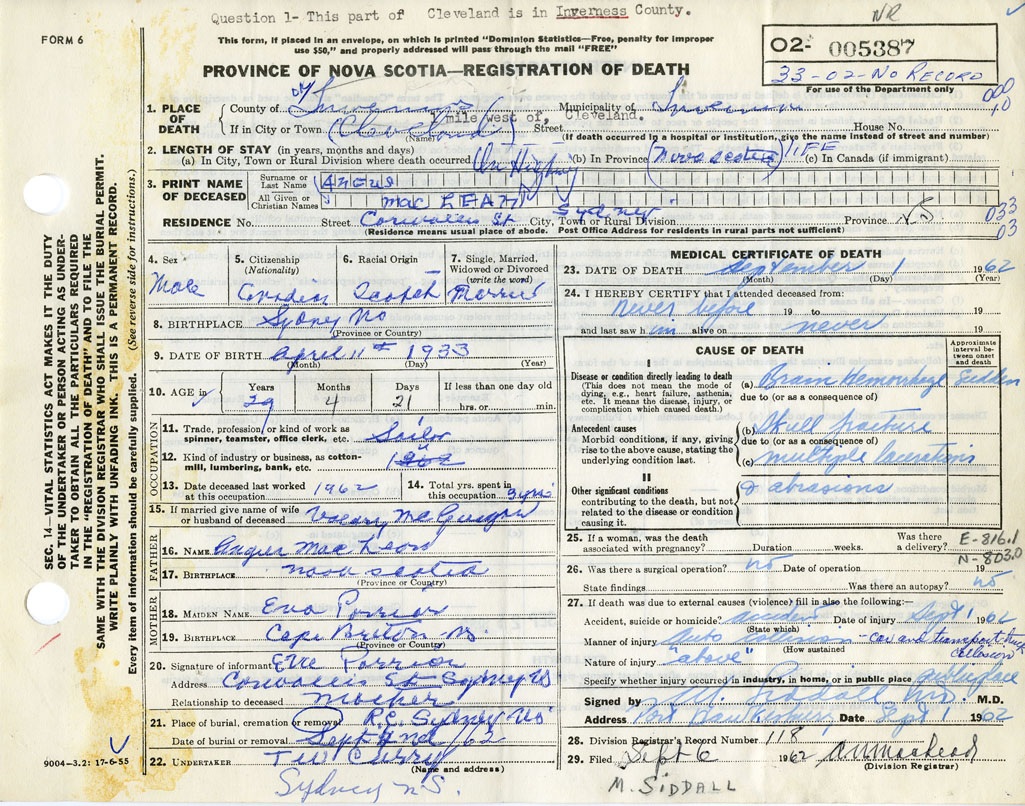 Question 1- This part of Cleveland is in Inverness County.
NR
FORM 6
This form, if placed in an envelope, on which is printed "Dominion Statistics—Free, penalty for improper
use $50," and properly addressed will pass through the mail "FREE"
02- 005387
33-02-No RECORD
For use of the Department only
PROVINCE OF NOVA SCOTIA—REGISTRATION OF DEATH
1. PLACE OF DEATH
County of Inverness Municipality of Inverness
1 mile west of, Cleveland.
If in City or Town (Cleveland) Street House No.
(Name) (If death occurred in a hospital or institution, give the name instead of street and number)
2. LENGTH OF STAY (in years, months and days)
(a) In City, Town or Rural Division where death occurred On Highway (b) In Province (Nova Scotia) LIFE (c) In Canada (if immigrant)
3. PRINT NAME OF DECEASED
Surname or Last Name
All Given or Christian Names Mac LEAN
RESIDENCE No. Street City, Town or Rural Division Sydney Province NS
033
03
(Residence means usual place of abode. Post Office Address for residents in rural parts not sufficient)
4. Sex Male
5. Citizenship (Nationality) Canadian
6. Racial Origin Scotch
7. Single, Married, Widowed or Divorced (write the word) Married
8. BIRTHPLACE Sydney
(Province or Country)
9. DATE OF BIRTH April 11th 1933
(Month) (Day) (Year)
10. AGE Years 29 Months 4 Days 21 If less than one day old hrs. or min.
OCCUPATION
11. Trade, profession or kind of work as spinner, teamster, office clerk, etc. Sailor
12. Kind of industry or business, as cotton-mill, lumbering, bank, etc.
13. Date deceased last worked at this occupation 1962
14. Total yrs. spent in this occupation 3 yrs
15. If married give name of wife or husband of deceased
FATHER
16. NAME
17. BIRTHPLACE Nova Scotia
(Province or Country)
MOTHER
18. MAIDEN NAME
19. BIRTHPLACE Cape Breton
(Province or Country)
20. Signature of informant
Address
Relationship to deceased Mother
21. Place of burial, cremation or removal R.C. Sydney
Date of burial or removal Sept 2nd /62
22. UNDERTAKER Curry
(Name and address)
Sydney N.S.
SEC. 14—VITAL STATISTICS ACT MAKES IT THE DUTY
OF THE UNDERTAKER OR PERSON ACTING AS UNDER-
TAKER TO OBTAIN ALL THE PARTICULARS REQUIRED
IN THE "REGISTRATION OF DEATH" AND TO FILE THE
SAME WITH THE DIVISION REGISTRAR WHO SHALL ISSUE THE BURIAL PERMIT.
WRITE PLAINLY WITH UNFADING INK. THIS IS A PERMANENT RECORD.
Every item of information should be carefully supplied. (See reverse side for instructions.)
9004-3.2: 17-6-55
MEDICAL CERTIFICATE OF DEATH
23. DATE OF DEATH September 1 1962
(Month) (Day) (Year)
24. I HEREBY CERTIFY that I attended deceased from:
never before 19 to 19
and last saw him alive on never 19
CAUSE OF DEATH
Approximate interval between onset and death
I
Disease or condition directly leading to death
(This does not mean the mode of dying, e.g., heart failure, asthenia, etc. It means the disease, injury, or complication which caused death.)
(a) Brain Hemorrhage Sudden
due to (or as a consequence of)
Antecedent causes
Morbid conditions, if any, giving rise to the above cause, stating the underlying condition last.
(b) Skull fracture
due to (or as a consequence of)
(c) multiple lacerations
II
Other significant conditions
contributing to the death, but not related to the disease or condition causing it.
& abrasions
25. If a woman, was the death associated with pregnancy? Duration weeks. Was there a delivery?
E-816.1
N-803.0
26. Was there a surgical operation? no Date of operation 19
State findings Was there an autopsy? no
27. If death was due to external causes (violence) fill in also the following:—
Accident, suicide or homicide? accident Date of injury Sept 1 1962
(State which)
Manner of injury Auto - car and transport truck collision
(How sustained)
Nature of injury "above"
Specify whether injury occurred in industry, in home, or in public place public place
Signed by M.D.
Address Port Hawkesbury Date Sept 1 1962
28. Division Registrar's Record Number 118
29. Filed Sept 6 1962
(Division Registrar)
M. SIDDALL